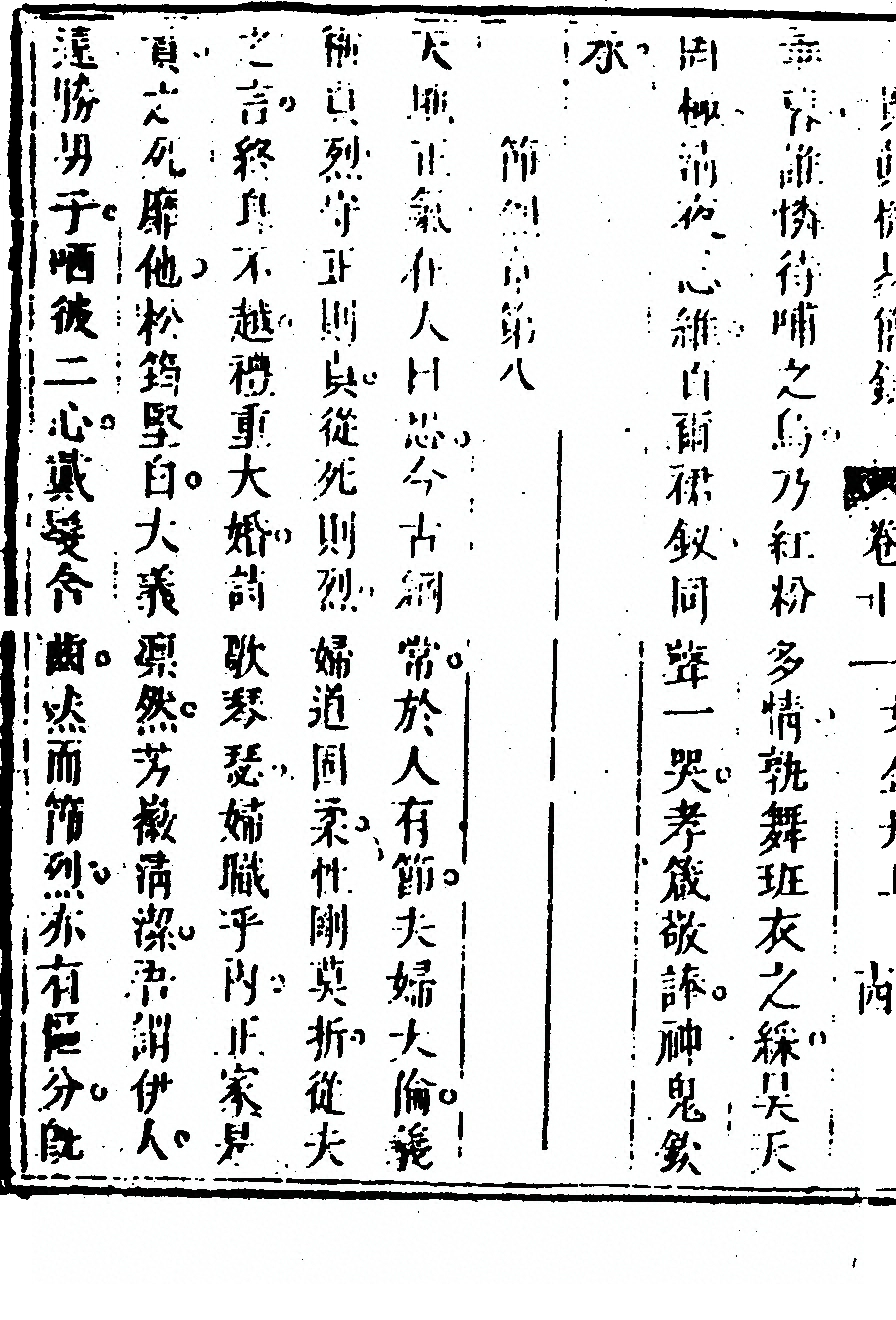 卷十一 女金丹上
幸畧誰憐待哺之烏乃紅粉多情孰舞班衣之綵昊天
罔極清夜心維白爾裙釵同聲一哭孝箴敬誦神鬼欽
承
節烈章第八
天地正氣在人曰忠今古綱常於人有節夫婦大倫義
稱貞烈守正則貞從死則烈婦道固柔性剛莫折從夫
之言終身不越禮重大婚詩歌琴瑟婦職乎內正家是
責之死靡他松筠堅白大義凛然芳徽清潔吾謂伊人
遠勝男子哂彼二心戴髮含齒然而節烈亦有區分既